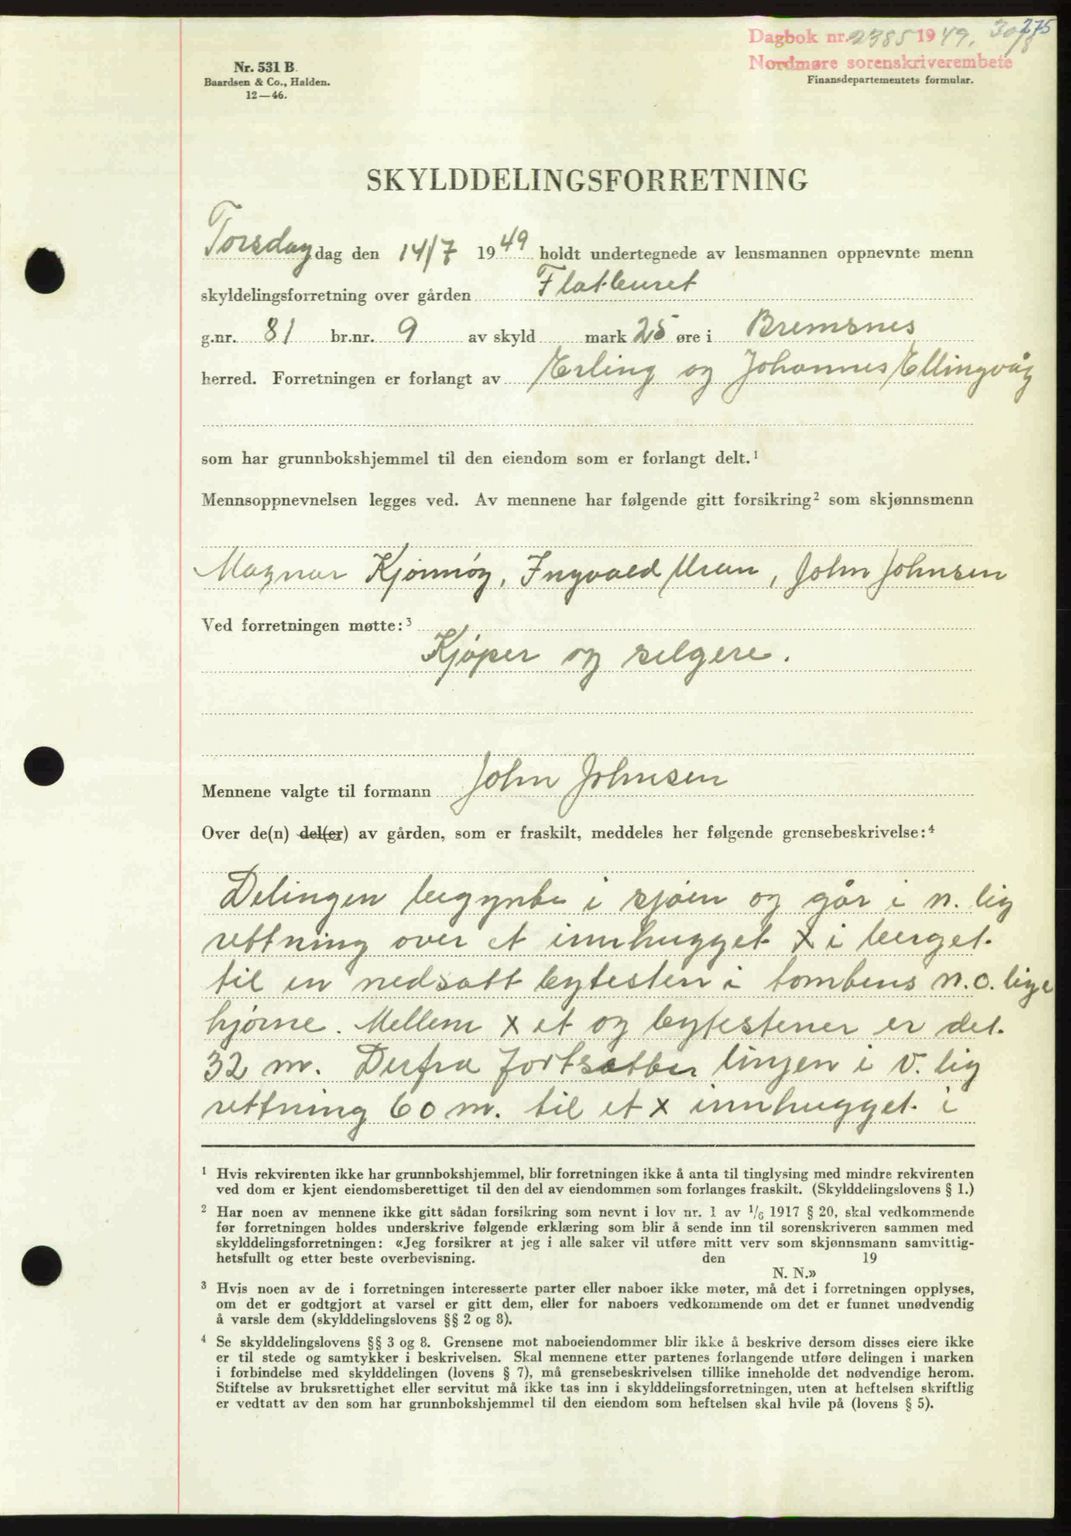 275
Dagbok nr. 2385 1949. 30/8
Nordmøre sorenskriverembete
Nr. 531 B.
Baardsen & Co., Halden.
12—46.
Finansdepartementets formular.
SKYLDDELINGSFORRETNING
Torsdag dag den 14/7 1949 holdt undertegnede av lensmannen oppnevnte menn
skyldelingsforretning over gården Flatleuret
g.nr. 81 br.nr. 9 av skyld mark 25 øre i Bremsnes
herred. Forretningen er forlangt av Erling og Johannes Ellingvåg
som har grunnbokshjemmel til den eiendom som er forlangt delt.¹
Mennsoppnevnelsen legges ved. Av mennene har følgende gitt forsikring² som skjønnsmenn
Magnar Kjønnøy, Ingvald Uran, John Johnsen
Ved forretningen møtte:³
Kjøper og selgere.
Mennene valgte til formann John Johnsen
Over de(n) del(er) av gården, som er fraskilt, meddeles her følgende grensebeskrivelse:⁴
Delingen begynte i sjøen og går i n. lig
rettning over et innhugget x i berget
til en nedsatt bytesten i tomtens n.o. lige
hjørne. Mellem x et og bytestener er det
32 m. Derfra fortsetter linjen i v. lig
rettning 60 m. til et x innhugget i
¹ Hvis rekvirenten ikke har grunnbokshjemmel, blir forretningen ikke å anta til tinglysing med mindre rekvirenten
ved dom er kjent eiendomsberettiget til den del av eiendommen som forlanges fraskilt. (Skylddelingslovens § 1.)
² Har noen av mennene ikke gitt sådan forsikring som nevnt i lov nr. 1 av 1/6 1917 § 20, skal vedkommende
før forretningen holdes underskrive følgende erklæring som blir å sende inn til sorenskriveren sammen med
skylddelingsforretningen: «Jeg forsikrer at jeg i alle saker vil utføre mitt verv som skjønnsmann samvittig-
hetsfullt og etter beste overbevisning. den 19
N. N.»
³ Hvis noen av de i forretningen interesserte parter eller naboer ikke møter, må det i forretningen opplyses,
om det er godtgjort at varsel er gitt dem, eller for naboers vedkommende om det er funnet unødvendig
å varsle dem (skylddelingslovens §§ 2 og 8).
⁴ Se skylddelingslovens §§ 3 og 8. Grensene mot naboeiendommer blir ikke å beskrive dersom disses eiere ikke
er til stede og samtykker i beskrivelsen. Skal mennene etter partenes forlangende utføre delingen i marken
i forbindelse med skylddelingen (lovens § 7), må grensebeskrivelsen tillike inneholde det nødvendige herom.
Stiftelse av bruksrettighet eller servitut må ikke tas inn i skylddelingsforretningen, uten at heftelsen skriftlig
er vedtatt av den som har grunnbokshjemmel til den eiendom som heftelsen skal hvile på (lovens § 5).